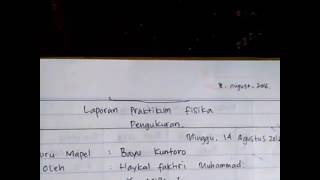 8. August. 2016
Laporan Praktikum fisika
Pengukuran.
Minggu, 14 Agustus 201
uru Mapel : Bayu Kuntoro
oleh : Haykal fakhri Muhammad.